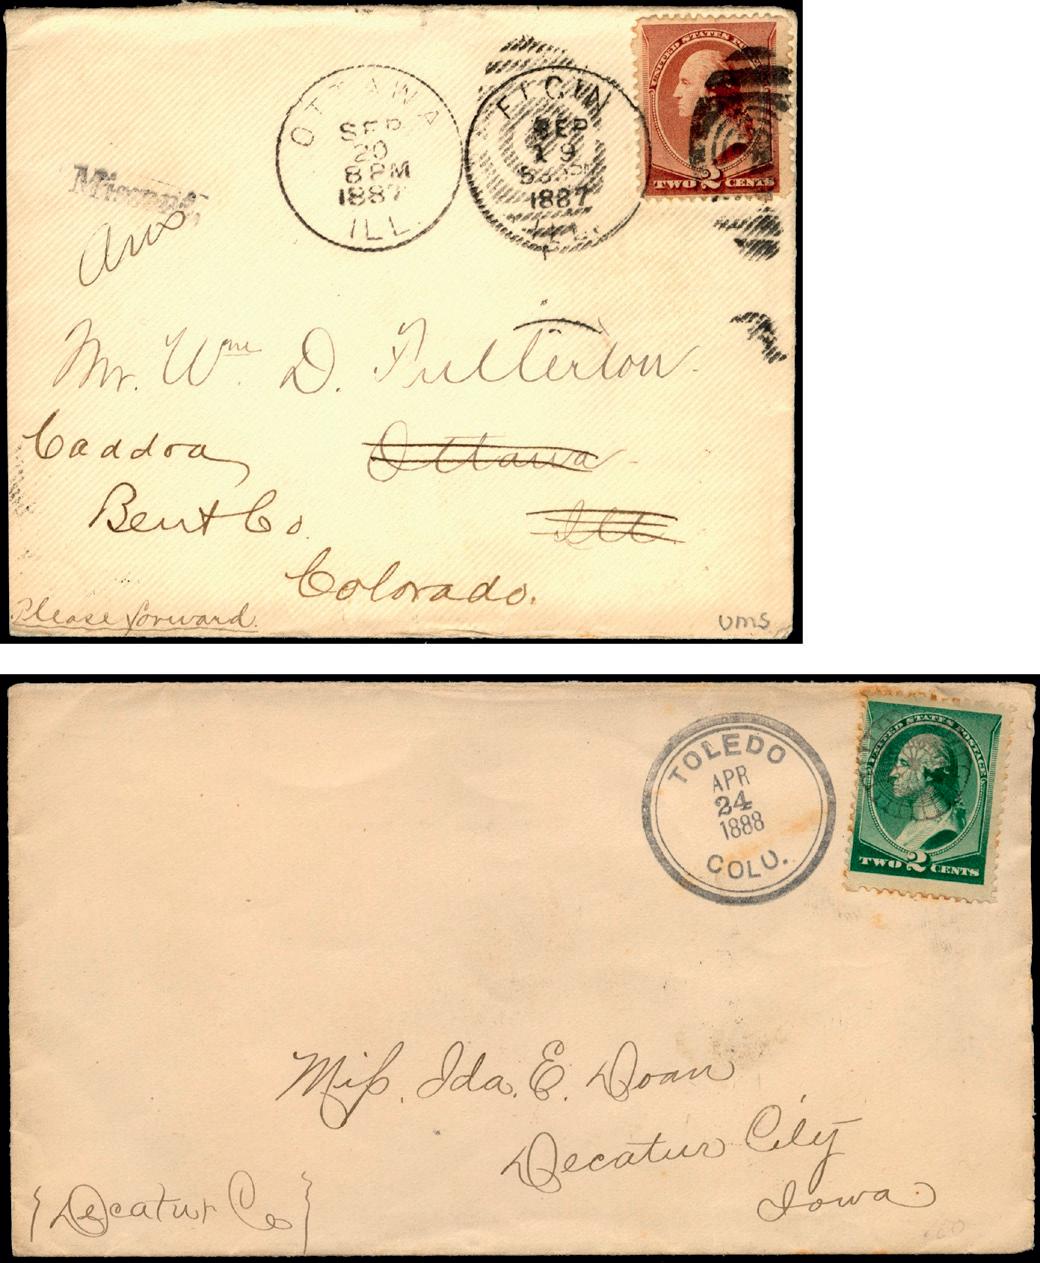 OTTAWA
SEP
20
8 PM
1887
ILL.
ELGIN
SEP
19
1887
ILL.
UNITED STATES
TWO 2 CENTS
Mr. Wm D. Fullerton.
Caddoa,
Ottawa
Bent Co.
Ill.
Colorado.
Please forward.
UMS
TOLEDO
APR
24
1888
COLO.
UNITED STATES POSTAGE
TWO 2 CENTS
Miss. Ida. E. Doan
Decatur City
{Decatur Co}
Iowa